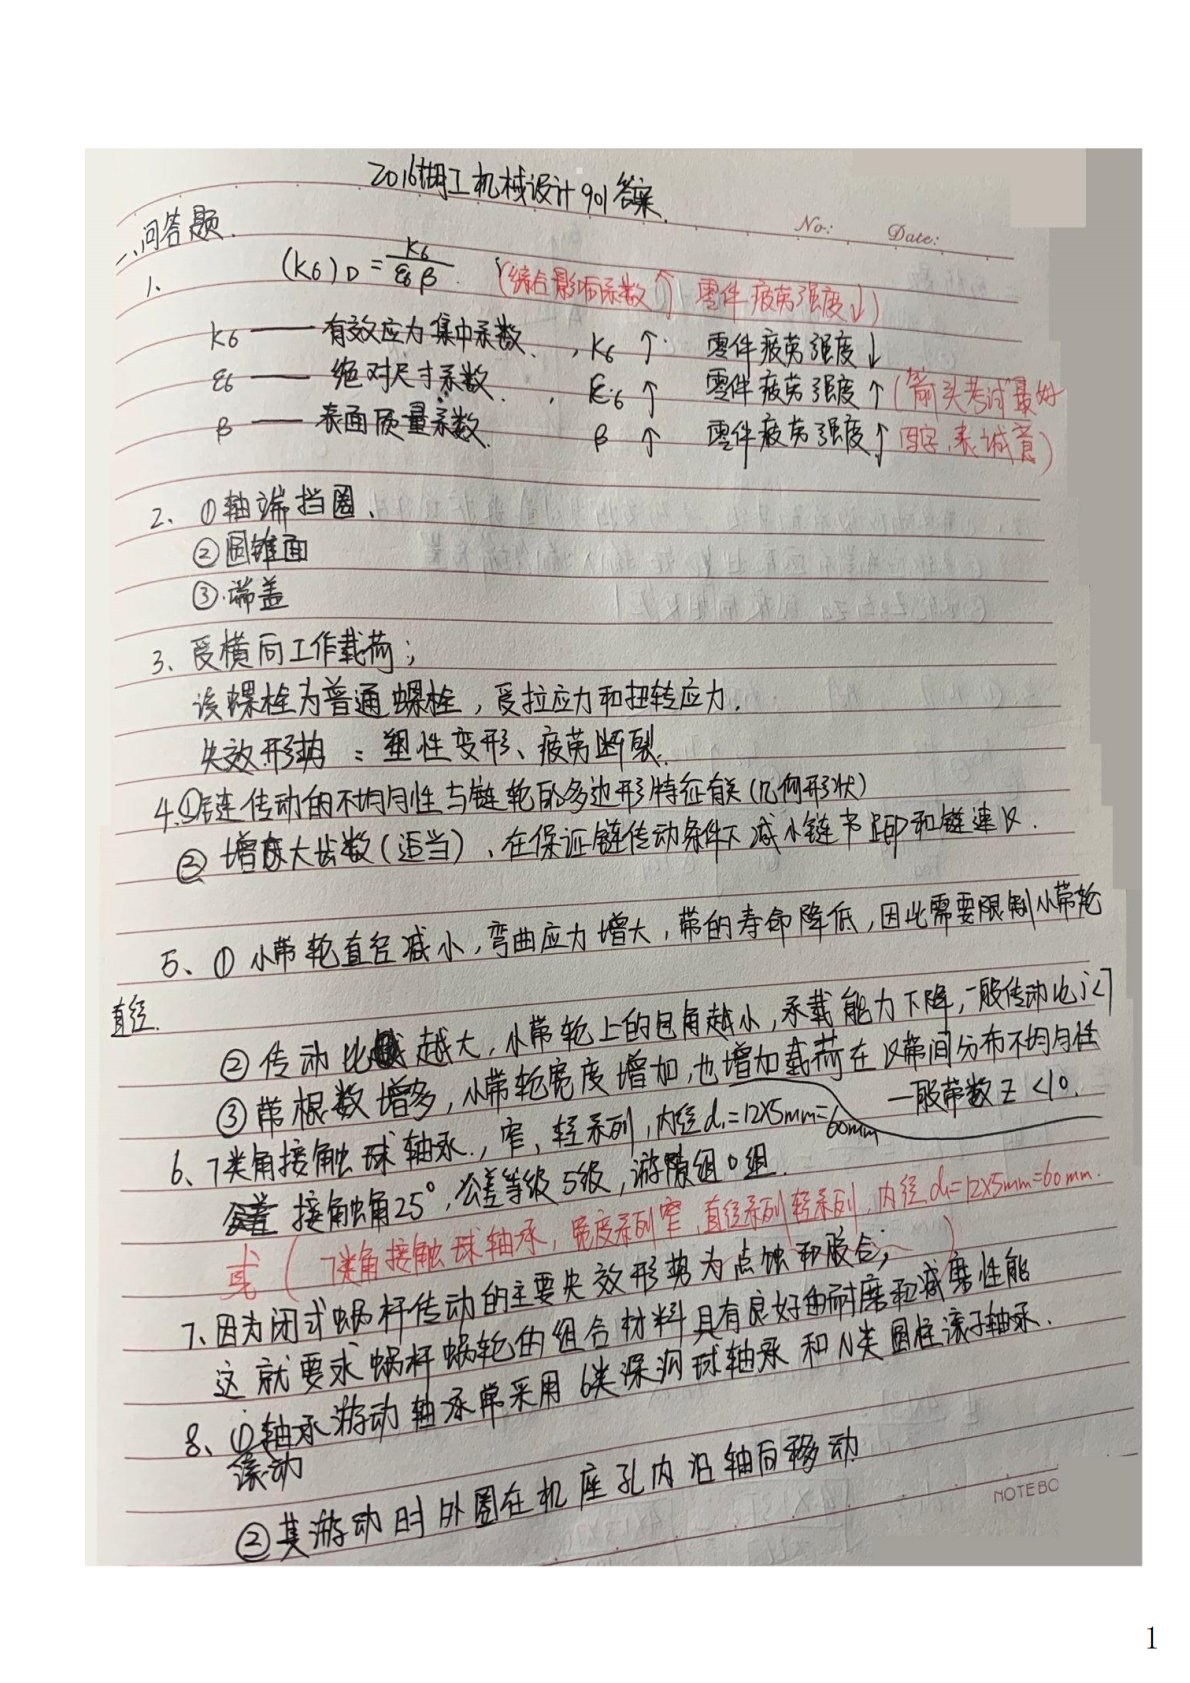 2016湖工机械设计901答案.
No: Date:
一、问答题.
1、 (K6)D = K6 / ε6 β (综合影响系数↑ 零件疲劳强度↓)
K6 —— 有效应力集中系数、, K6 ↑ 零件疲劳强度↓
ε6 —— 绝对尺寸系数、, ε6 ↑ 零件疲劳强度↑ (箭头考试最好
β —— 表面质量系数. β ↑ 零件疲劳强度↑ 写字,表诚意)
2、①轴端挡圈、
②圆锥面
③端盖
3、受横向工作载荷;
该螺栓为普通螺栓,受拉应力和扭转应力.
失效形势:塑性变形、疲劳断裂.
4.①链传动的不均匀性与链轮的多边形特征有关(几何形状)
②增大齿数(适当)、在保证链传动条件下减小链节距P和链速V.
5、①小带轮直径减小,弯曲应力增大,带的寿命降低,因此需要限制小带轮
直径.
②传动比越大,小带轮上的包角越小,承载能力下降,一般传动比i<7
③带根数增多,小带轮宽度增加,也增加载荷在V带间分布不均匀性
一般带数Z<10.
6、7类角接触球轴承.,窄、轻系列,内径d1=12×5mm=60mm
接触角25°,公差等级5级,游隙组0组.
或(7类角接触球轴承,宽度系列窄,直径系列轻系列,内径d1=12×5mm=60mm.)
7、因为闭式蜗杆传动的主要失效形势为点蚀和胶合;
这就要求蜗杆蜗轮的组合材料具有良好的耐磨和减磨性能
8、①轴承游动轴承常采用6类深沟球轴承和N类圆柱滚子轴承.
滚动
②其游动时外圈在机座孔内沿轴向移动
NOTEBO
1